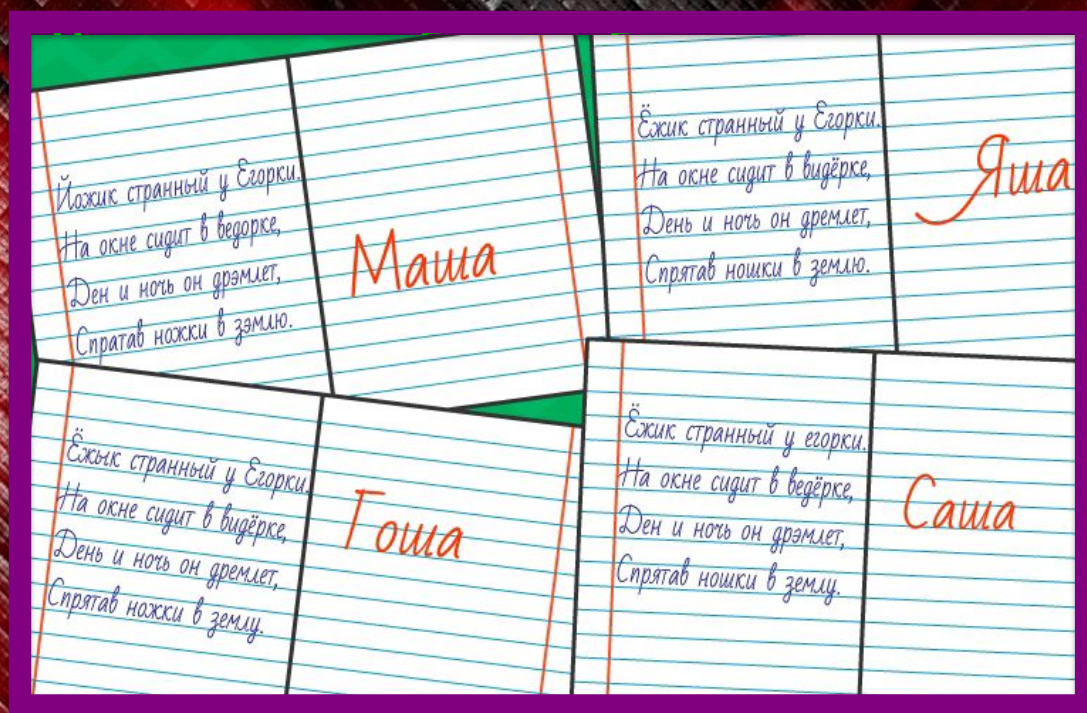 Йожик странный у Егорки.
На окне сидит в ведорке,
Ден и ночь он дрэмлет,
Спратав ножки в зэмлю.
Маша
Ёжик странный у Егорки.
На окне сидит в видёрке,
День и ночь он дремлет,
Спрятав ношки в землю.
Яша
Ёжык странный у Егорки.
На окне сидит в видёрке,
День и ночь он дремлет,
Спрятав ножки в землу.
Гоша
Ёжик странный у егорки.
На окне сидит в ведёрке,
Ден и ночь он дрэмлет,
Спрятав ношки в землу.
Саша